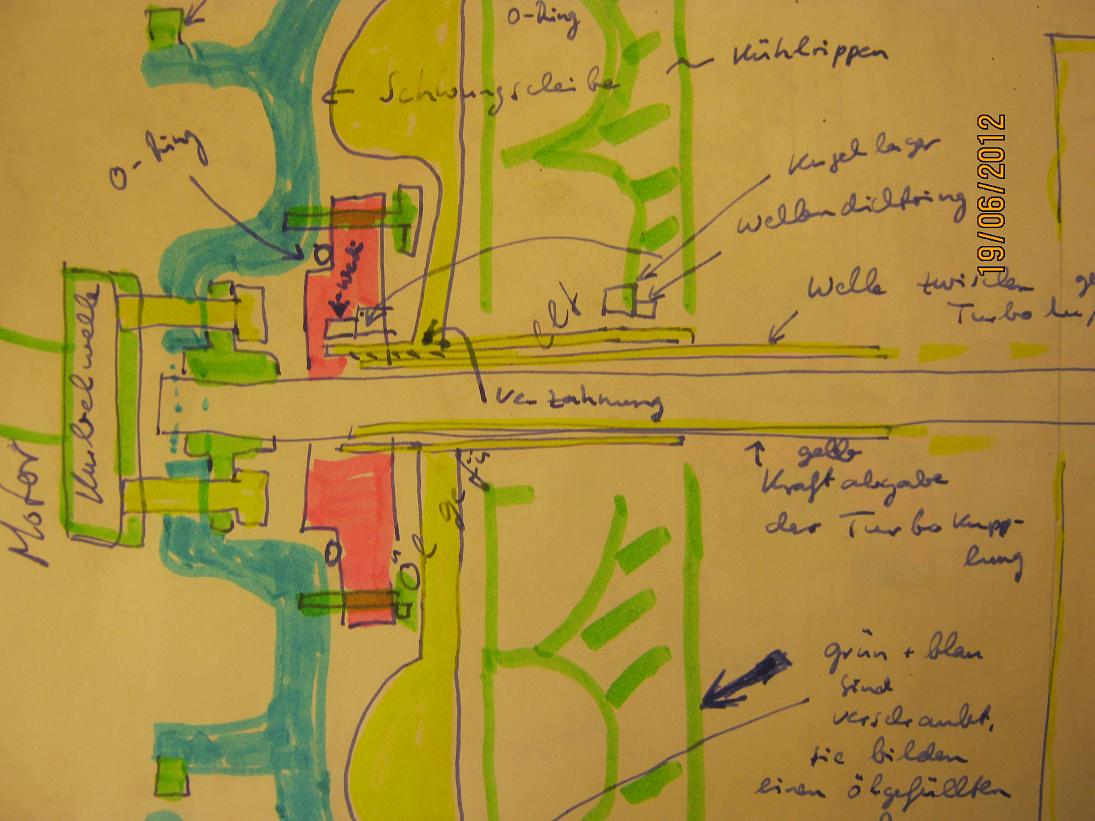 O-Ring
Kühlrippen
Schwungscheibe
O-Ring
Kugellager
Wellendichtring
19/06/2012
Welle zwischen
Turbo
Kurbelwelle
Motor
Verzahnung
gelb
Kraftabgabe
der Turbokupp-
lung
Öl
Öl
grün + blau
sind
verschraubt,
sie bilden
einen ölgefüllten